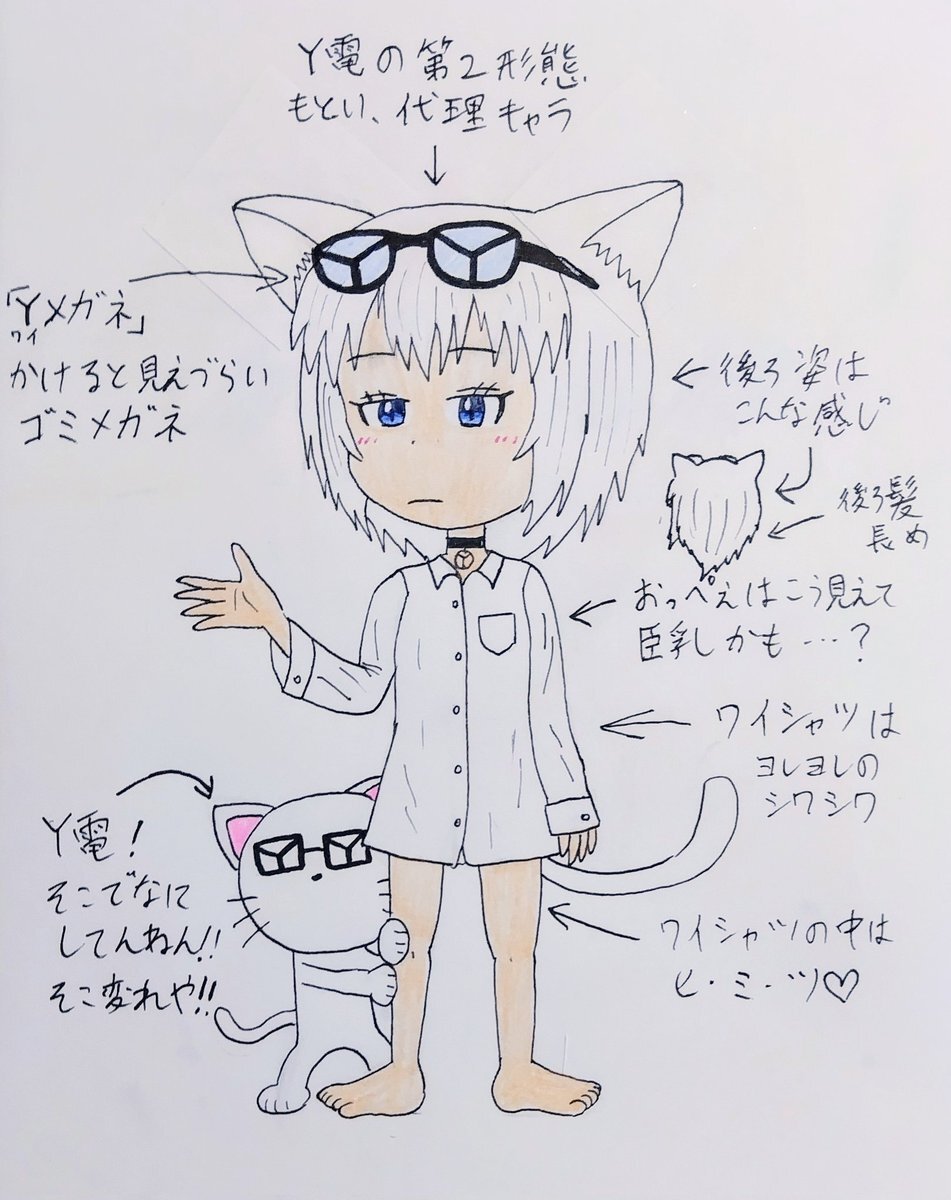 Y電の第2形態
もとい、代理キャラ
「Yメガネ」
ワイ
かけると見えづらい
ゴミメガネ
後ろ姿は
こんな感じ
後ろ髪
長め
おっぺえはこう見えて
臣乳しかも…?
ワイシャツは
ヨレヨレの
シワシワ
Y電!
そこでなに
してんねん!!
そこ変れや!!
ワイシャツの中は
ヒ・ミ・ツ♡